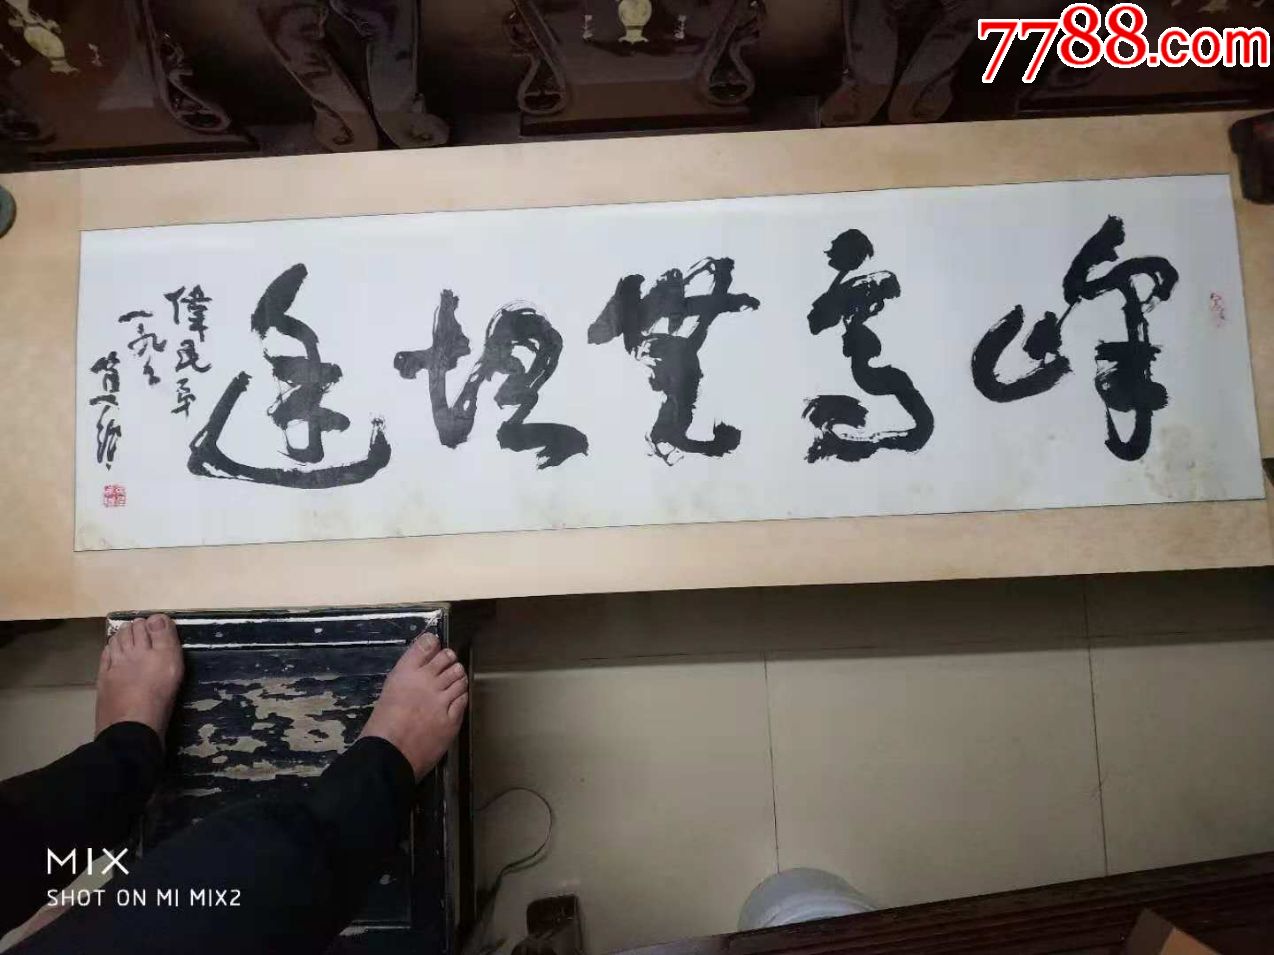 7788.com
峰高無坦途
偉民
一九八
MIX
SHOT ON MI MIX2